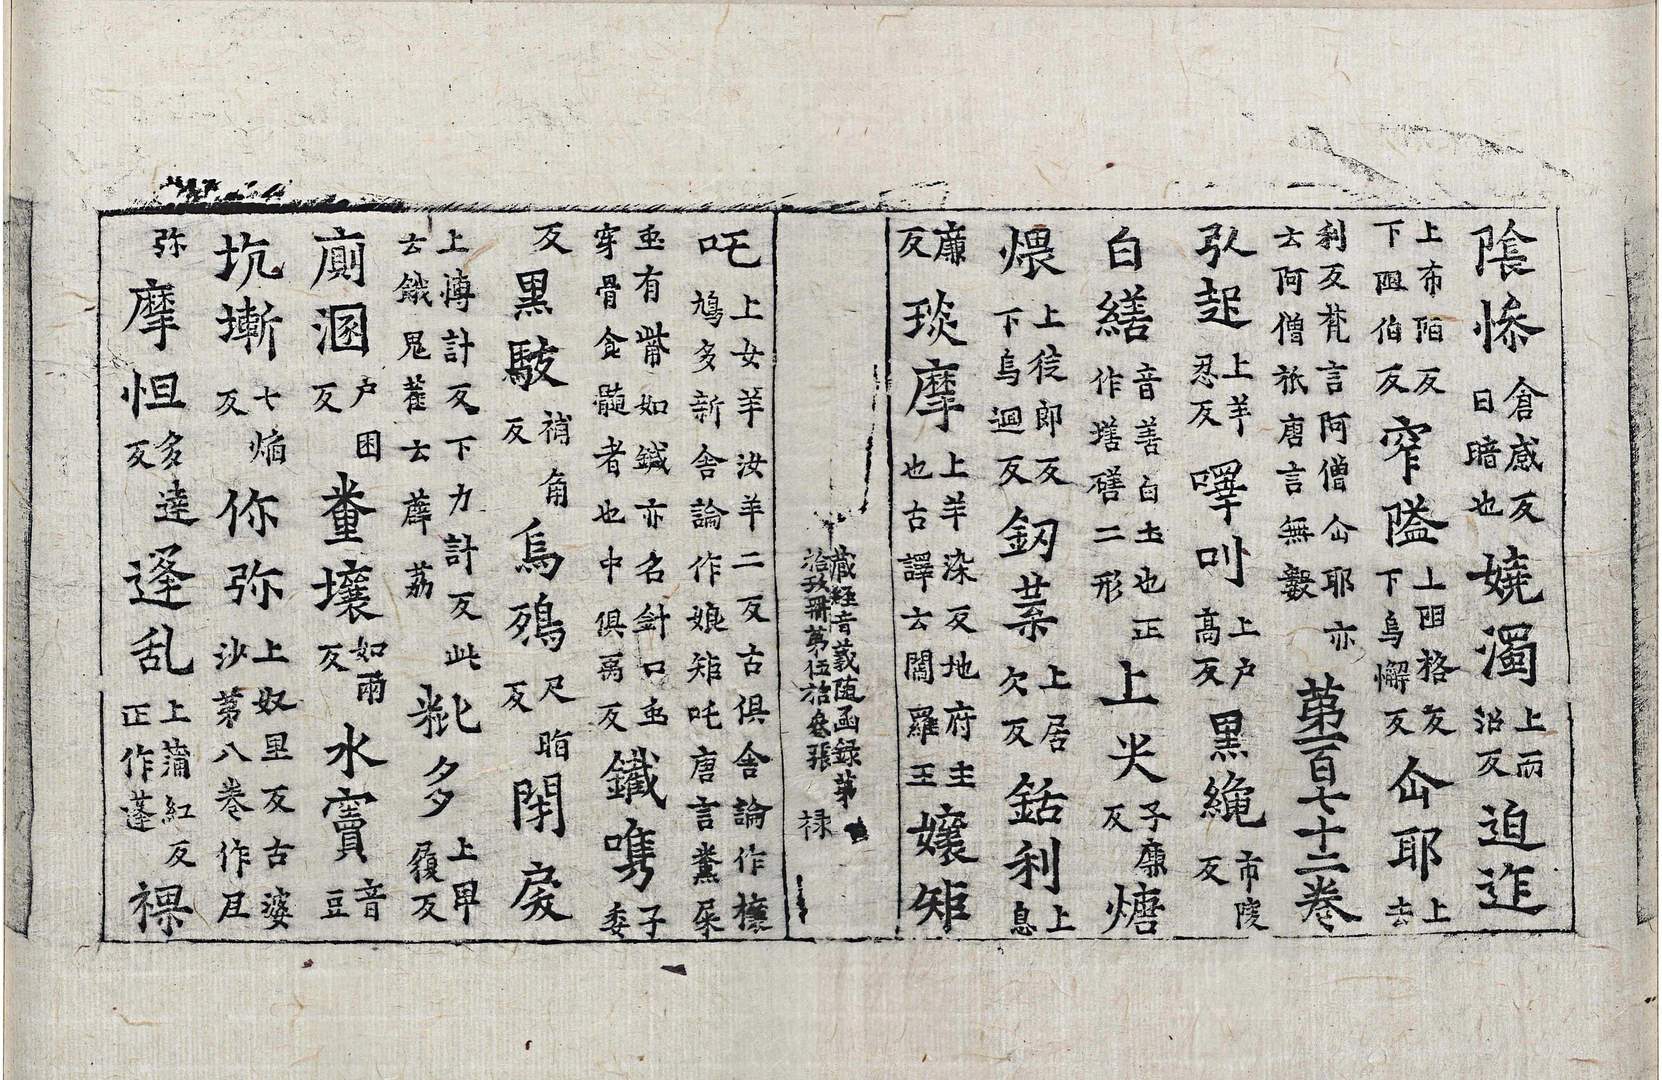 陰慘倉感反日暗也嬈濁上而沼反迫迮
上布陌反下囬伯反窄隘上囬格反下烏懈反㕘耶上去
利反梵言阿僧㕘耶亦云阿僧祇唐言無數第一百七十二卷
弘起上羊忍反嘷叫上户高反黒繩市陵反
白繕音善白土也正作墡磰二形上尖子廉反煻
煨上徒郎反下烏迴反釰葉上居欠反銛利上息
廉反琰摩上羊染反地府主也古譯云閻羅王孃矩
藏經音義隨函録第治玖冊第伍拾叄張 禄
吒上女羊汝羊二反古俱舍論作攘鳩多新舍論作娘矩吒唐言糞屎
䖝有觜如鍼亦名針口䖝穿骨食髓者也中俱禹反鐵嘴子委
反黒駁補角反烏鵶尺脂反閇戾
上博計反下力計反此云餓鬼舊云薜荔粃多上卑履反
廁溷户困反糞壤如兩反水竇音豆
坑塹七焰反你弥上奴里反古婆沙苐八卷作且
弥摩怛多達反逢乱上蒲紅反正作蓬裸